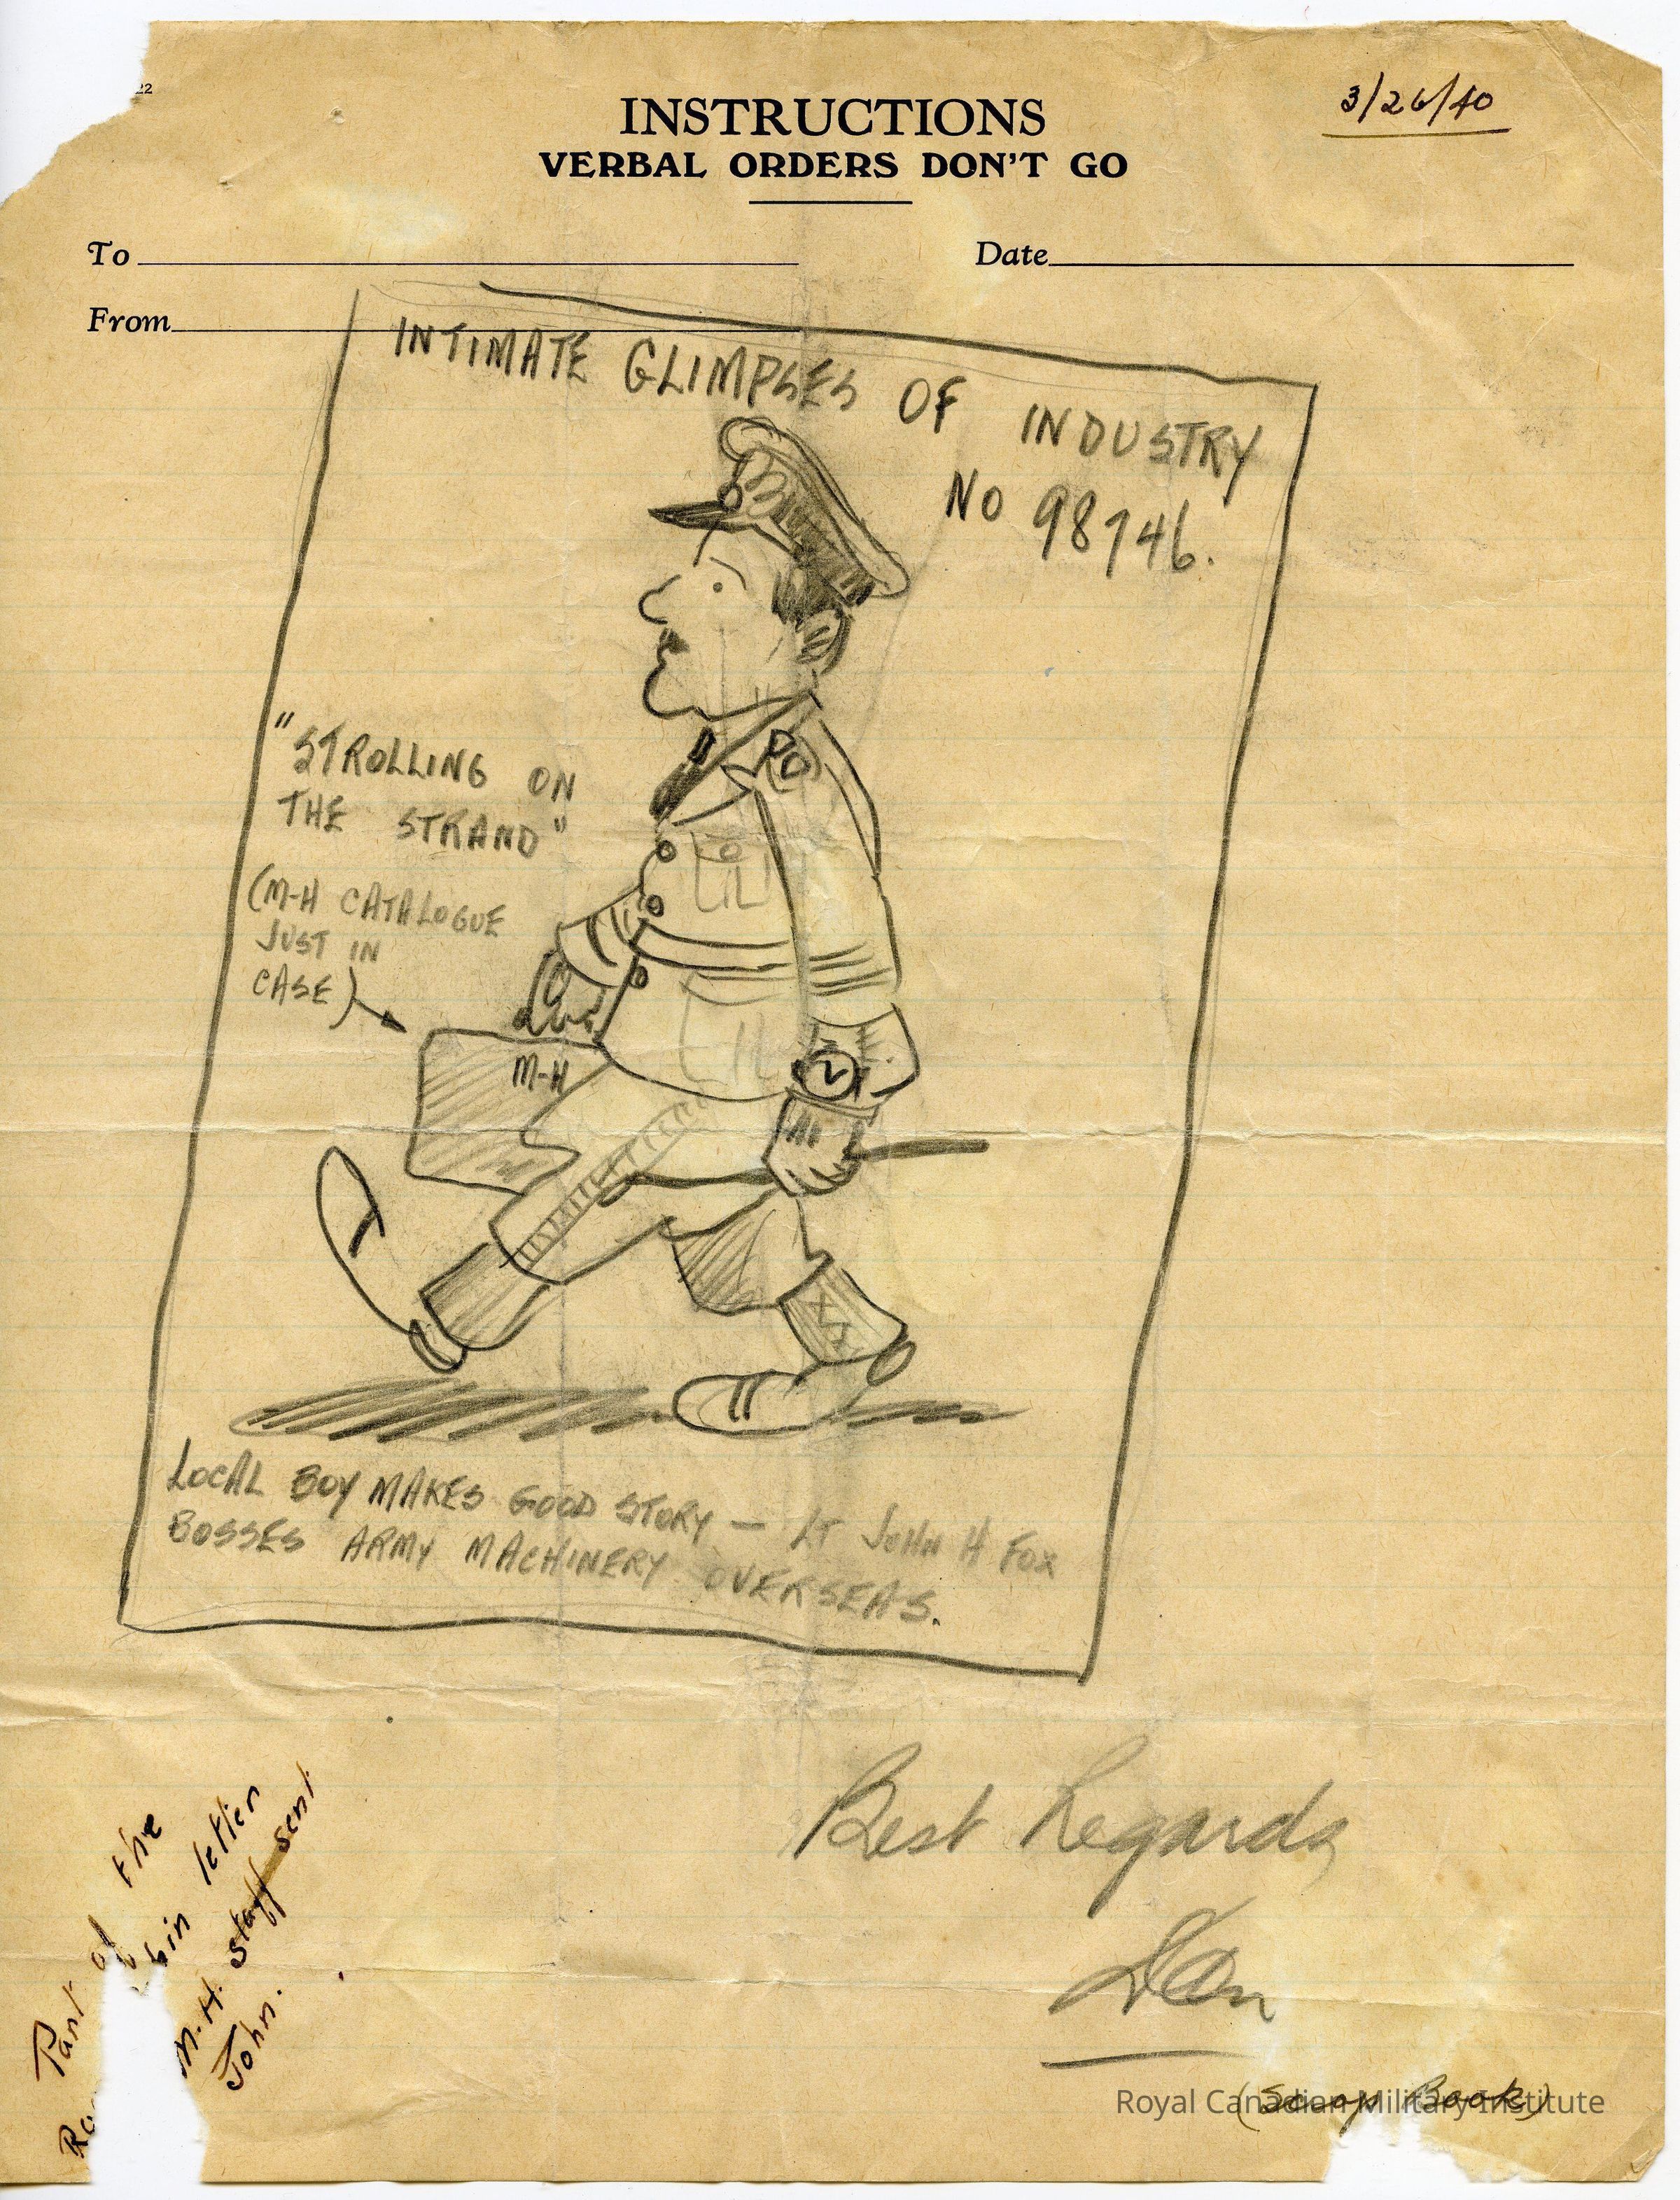 22
3/26/40
INSTRUCTIONS
VERBAL ORDERS DON'T GO
To
Date
From
INTIMATE GLIMPSES OF INDUSTRY
NO 98746.
"STROLLING ON
THE STRAND"
(M-H CATALOGUE
JUST IN
CASE)
M-H
LOCAL BOY MAKES GOOD STORY — LT JOHN H FOX
BOSSES ARMY MACHINERY OVERSEAS.
Best Regards
Part of the
bin letter
M.H. staff sent
John.
(Scrap Book)
Royal Canadian Military Institute